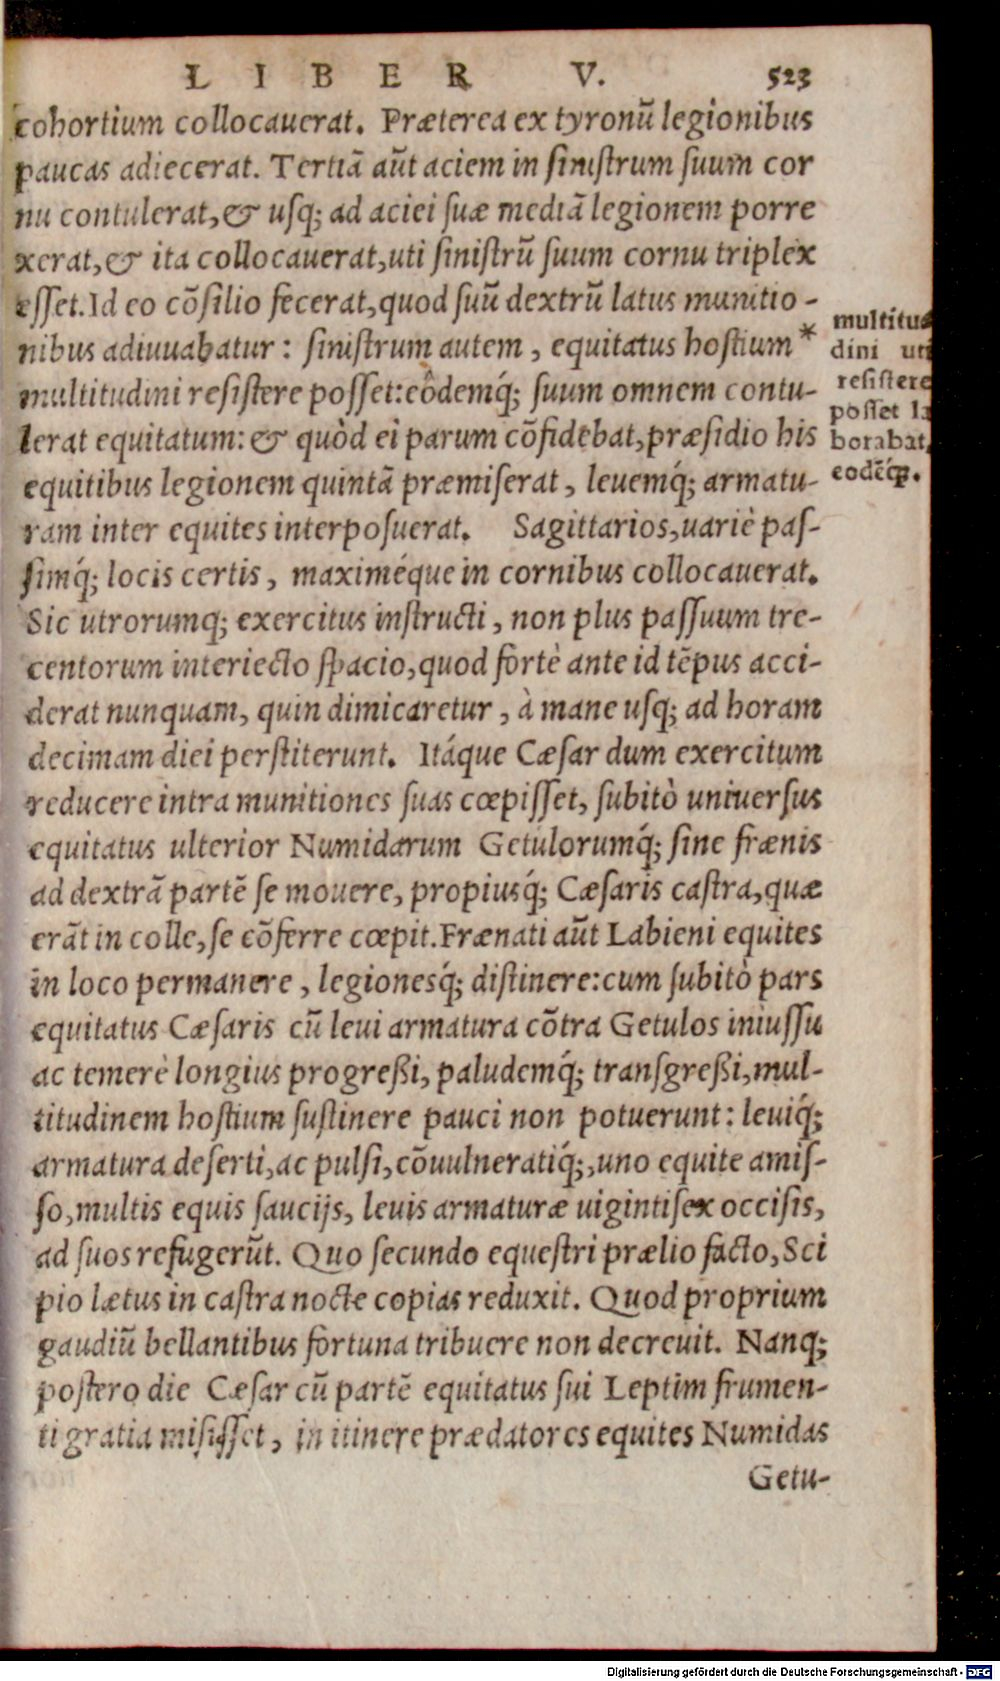 LIBER V. 523
cohortium collocauerat. Præterea ex tyronũ legionibus
paucas adiecerat. Tertiã aũt aciem in sinistrum suum cor
nu contulerat, & usq; ad aciei suæ mediã legionem porre
xerat, & ita collocauerat, uti sinistrũ suum cornu triplex
esset. Id eo cõsilio fecerat, quod suũ dextrũ latus munitio-
nibus adiuuabatur: sinistrum autem, equitatus hostium *
multitudini resistere posset: eôdemq́; suum omnem contu-
lerat equitatum: & quòd ei parum cõfidebat, præsidio his
equitibus legionem quintã præmiserat, leuemq́; armatu-
ram inter equites interposuerat. Sagittarios, uariè pas-
simq́; locis certis, maximéque in cornibus collocauerat.
Sic utrorumq; exercitus instructi, non plus passuum tre-
centorum interiecto spacio, quod fortè ante id tẽpus acci-
derat nunquam, quin dimicaretur, à mane usq; ad horam
decimam diei perstiterunt. Itáque Cæsar dum exercitum
reducere intra munitiones suas cœpisset, subitò uniuersus
equitatus ulterior Numidarum Getulorumq́; sine frænis
ad dextrã partẽ se mouere, propiusq́; Cæsaris castra, quæ
erãt in colle, se cõferre cœpit. Frænati aũt Labieni equites
in loco permanere, legionesq́; distinere: cum subitò pars
equitatus Cæsaris cũ leui armatura cõtra Getulos iniussu
ac temerè longius progreßi, paludemq́; transgreßi, mul-
titudinem hostium sustinere pauci non potuerunt: leuiq́;
armatura deserti, ac pulsi, cõuulneratiq́;, uno equite amis-
so, multis equis saucijs, leuis armaturæ uigintisex occisis,
ad suos refugerũt. Quo secundo equestri prælio facto, Sci
pio lætus in castra nocte copias reduxit. Quod proprium
gaudiũ bellantibus fortuna tribuere non decreuit. Nanq;
postero die Cæsar cũ partẽ equitatus sui Leptim frumen-
ti gratia misisset, in itinere prædatores equites Numidas
Getu-
multitu
dini uti
resistere
posset la
borabat,
eodẽq́;.
Digitalisierung gefördert durch die Deutsche Forschungsgemeinschaft - DFG